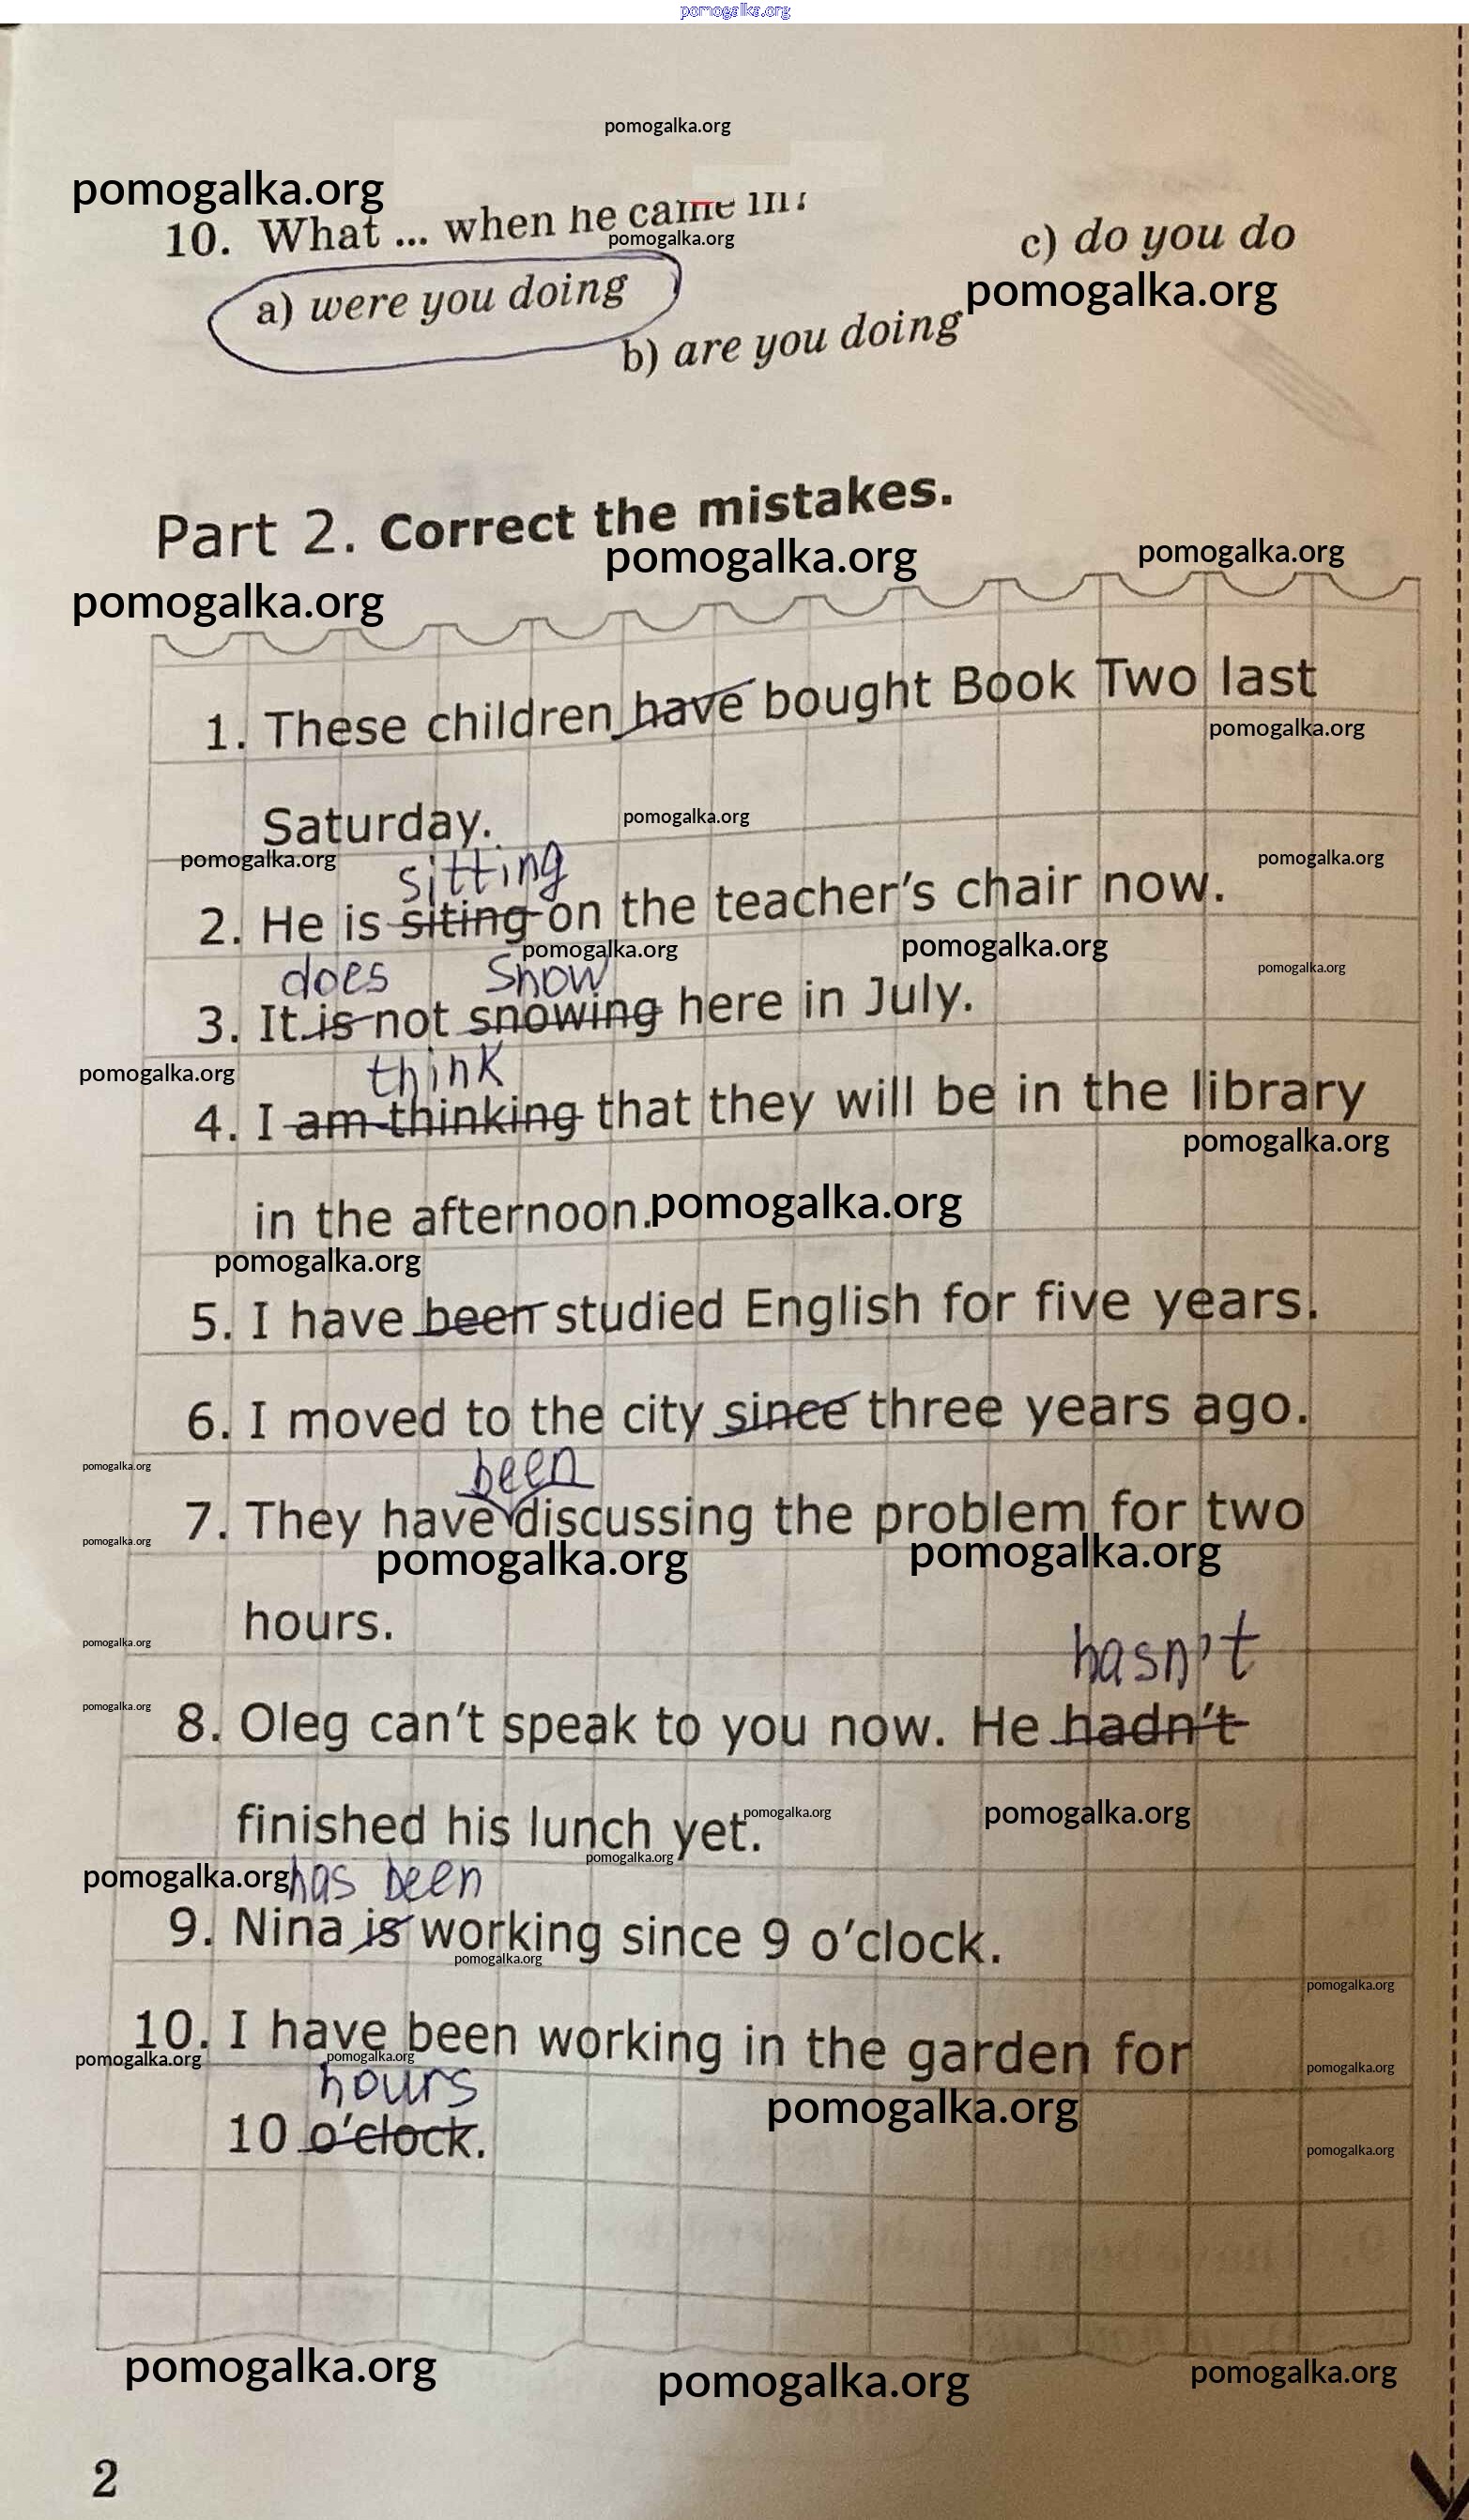 pomogalka.org
pomogalka.org
pomogalka.org
10. What ... when he came in?
pomogalka.org
c) do you do
a) were you doing
pomogalka.org
b) are you doing
Part 2. Correct the mistakes.
pomogalka.org
pomogalka.org
pomogalka.org
1. These children have bought Book Two last
pomogalka.org
Saturday.
pomogalka.org
pomogalka.org
pomogalka.org
sitting
2. He is siting on the teacher's chair now.
pomogalka.org
pomogalka.org
pomogalka.org
does snow
3. It is not snowing here in July.
pomogalka.org
think
4. I am thinking that they will be in the library
pomogalka.org
in the afternoon.
pomogalka.org
pomogalka.org
5. I have been studied English for five years.
6. I moved to the city since three years ago.
pomogalka.org
been
7. They have discussing the problem for two
pomogalka.org
pomogalka.org
pomogalka.org
hours.
pomogalka.org
hasn't
pomogalka.org
8. Oleg can't speak to you now. He hadn't
finished his lunch yet.
pomogalka.org
pomogalka.org
pomogalka.org
pomogalka.org
has been
9. Nina is working since 9 o'clock.
pomogalka.org
pomogalka.org
10. I have been working in the garden for
pomogalka.org
pomogalka.org
pomogalka.org
hours
10 o'clock.
pomogalka.org
pomogalka.org
pomogalka.org
pomogalka.org
pomogalka.org
2